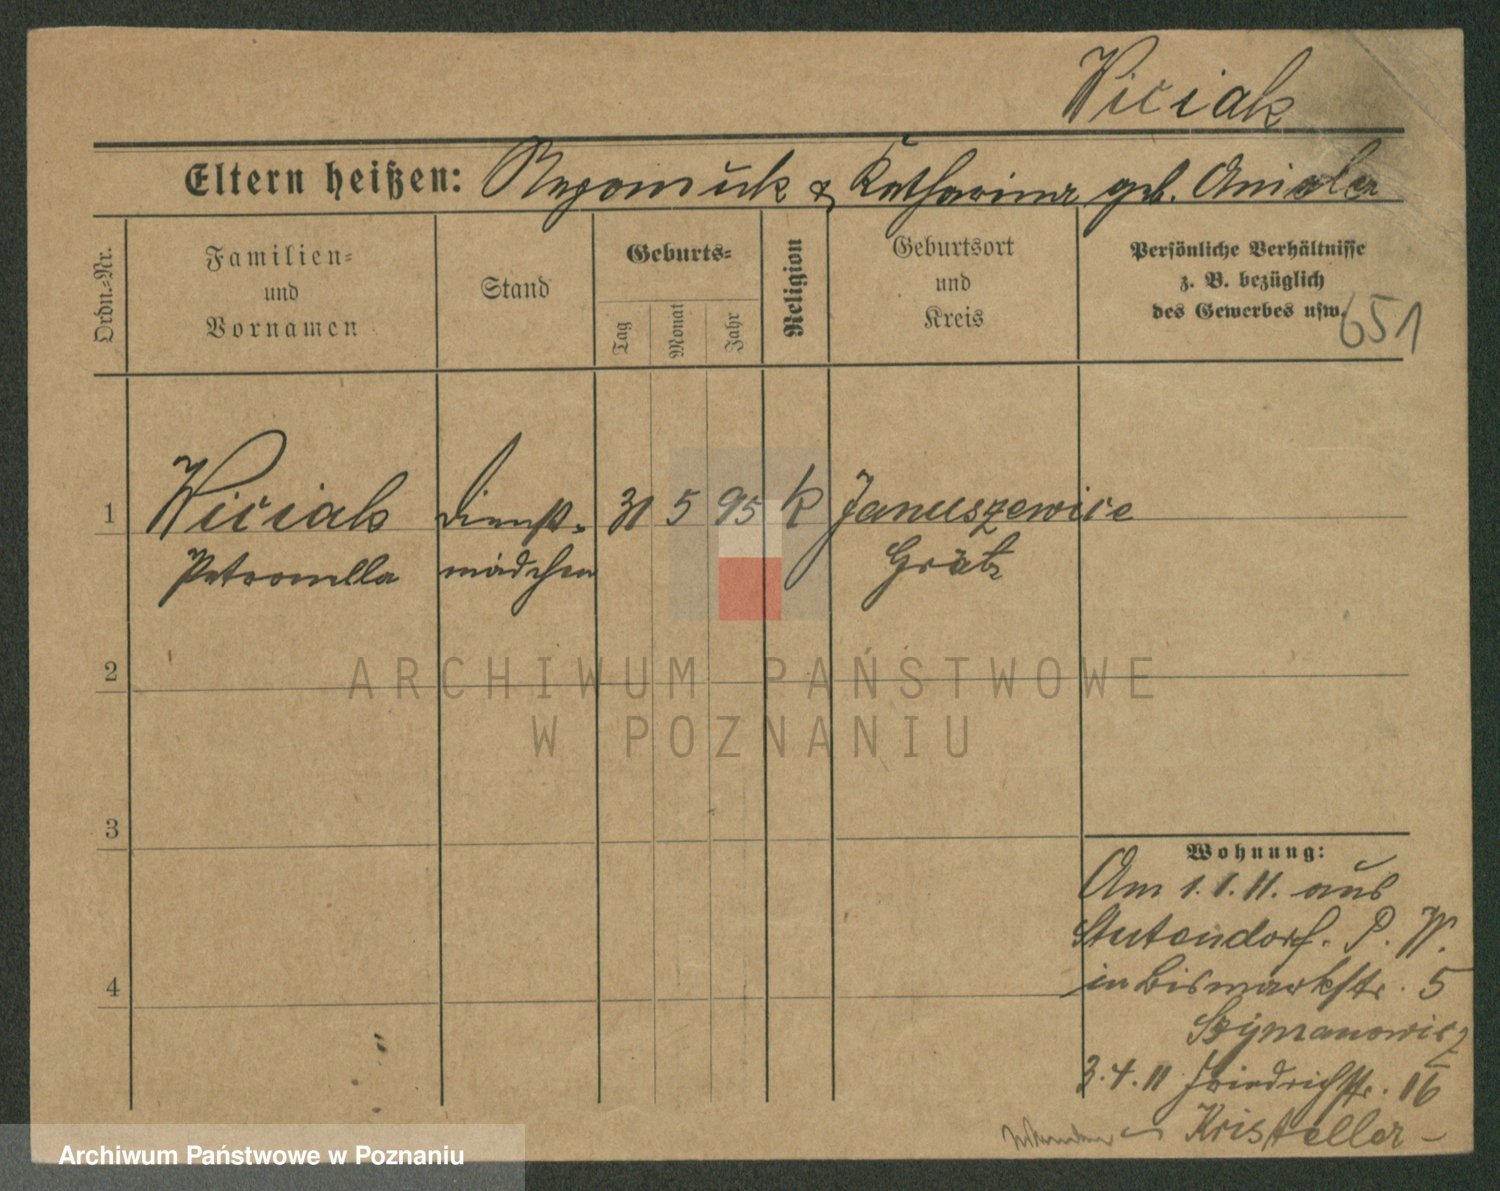 Wiciak
Eltern heißen: Nepomuk & Katharina geb.
Ordn.=Nr.
Familien=
und
Vornamen
Stand
Geburts=
Tag
Monat
Jahr
Religion
Geburtsort
und
Kreis
Persönliche Verhältnisse
z. B. bezüglich
des Gewerbes usw.
651
1 Wiciak Dienst= 31 5 95 k Januszewice
Petronella mädchen Grätz
2
3
4
Wohnung:
Am 1.1.11. aus
Stutendorf. P. W.
in Bismarkstr. 5
Szymanowicz
3.4.11 Friedrichstr. 16
Kristeller
ARCHIWUM PAŃSTWOWE
W POZNANIU
Archiwum Państwowe w Poznaniu